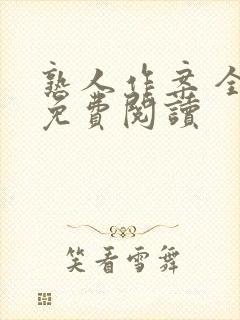 熟人作案全
免費閱讀
笑看雪舞